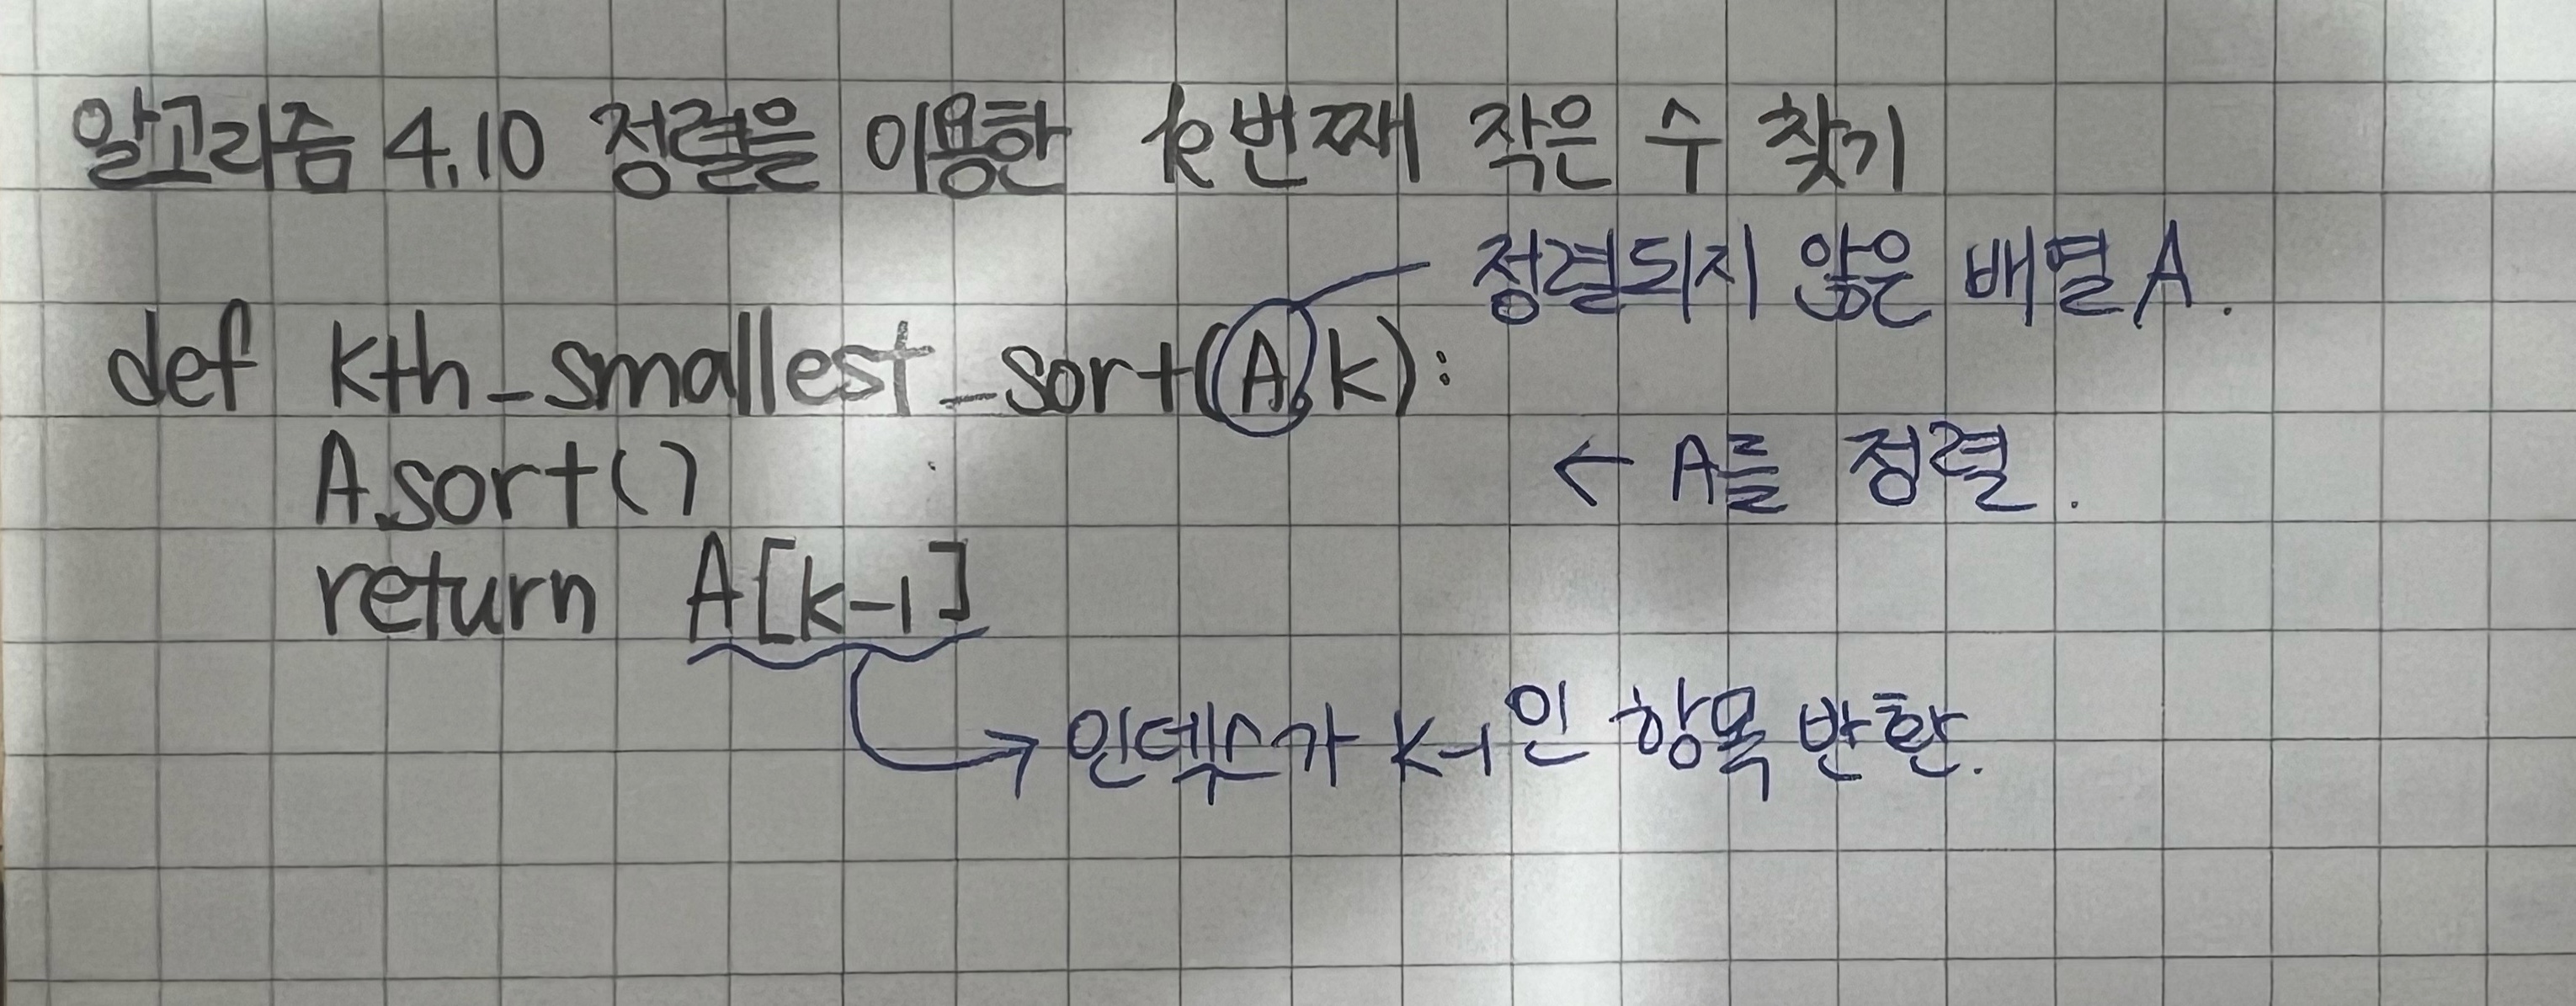 알고리즘 4.10 정렬을 이용한 k번째 작은 수 찾기
정렬되지 않은 배열 A.
def kth_smallest_sort(A,k):
A.sort() ← A를 정렬.
return A[k-1]
인덱스가 k-1인 항목 반환.